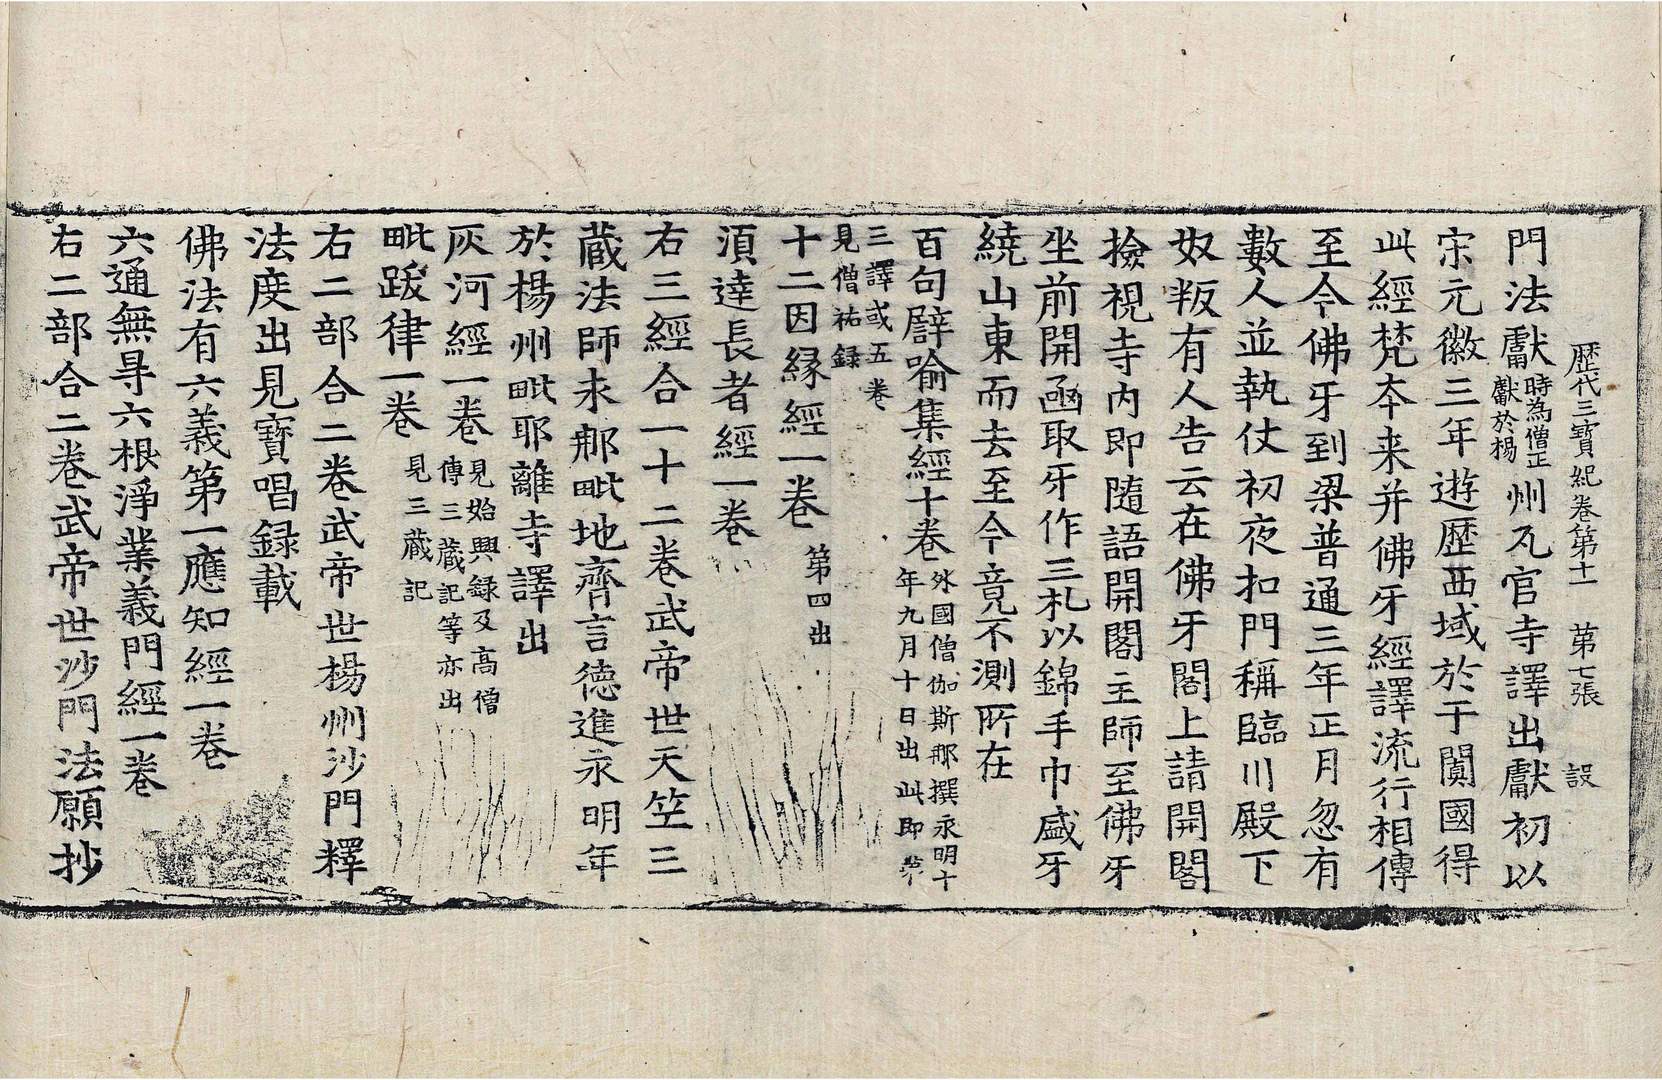 歷代三寶紀卷第十一 第七張 設
門法獻時為僧正獻於楊州瓦官寺譯出獻初以
宋元徽三年遊歷西域於于闐國得
此經梵夲来并佛牙經譯流行相傳
至今佛牙到梁普通三年正月忽有
數人並執仗初夜扣門稱臨川殿下
奴叛有人告云在佛牙閣上請開閣
撿視寺内即隨語開閣主師至佛牙
坐前開函取牙作三札以錦手巾盛牙
繞山東而去至今竟不測所在
百句譬喻集經十卷外國僧伽斯那撰永明十年九月十日出此即第
三譯或五卷見僧祐録
十二因縁經一卷第四出
湏達長者經一卷
右三經合一十二卷武帝世天笠三
蔵法師求郍毗地齊言德進永明年
於楊州毗耶離寺譯出
灰河經一卷見始興録及高僧傳三蔵記等亦出
毗跋律一卷見三蔵記
右二部合二卷武帝世楊州沙門釋
法度出見寶唱録載
佛法有六義第一應知經一卷
六通無㝵六根淨業義門經一卷
右二部合二卷武帝世沙門法願抄